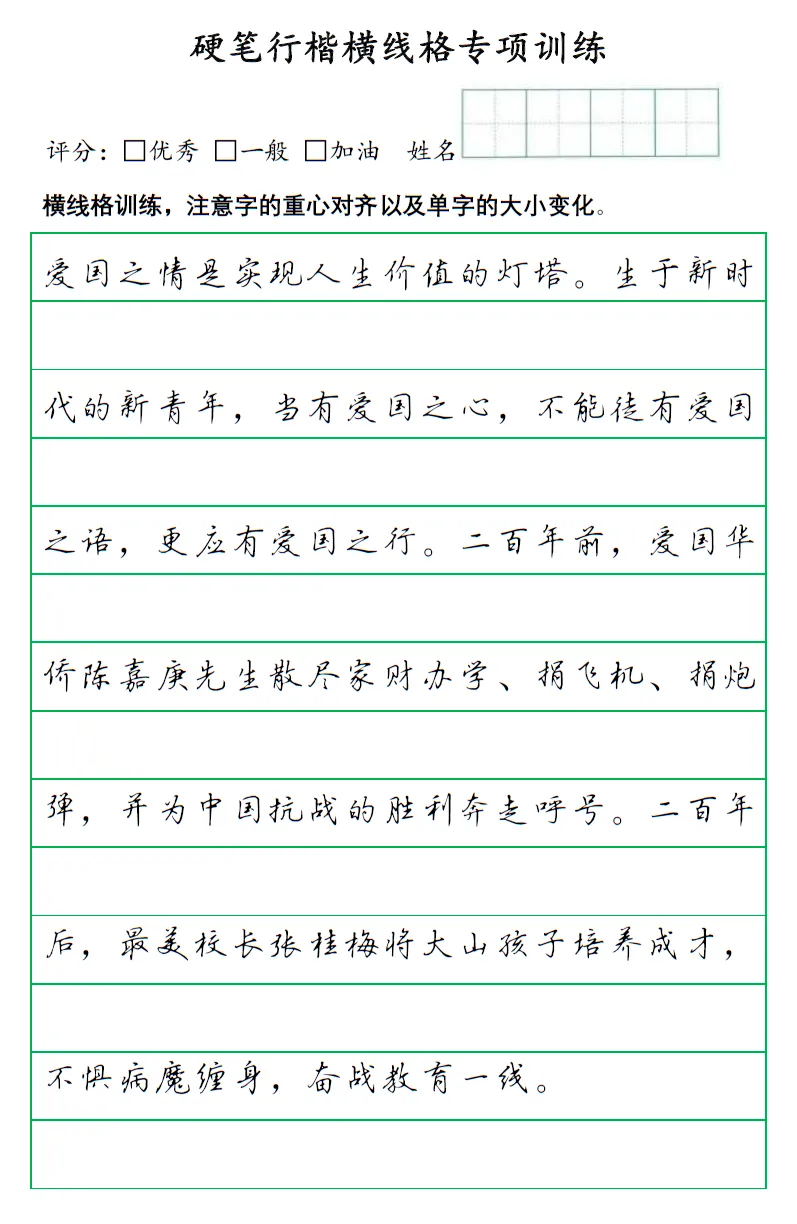 硬笔行楷横线格专项训练
评分：□优秀 □一般 □加油 姓名
横线格训练，注意字的重心对齐以及单字的大小变化。
爱国之情是实现人生价值的灯塔。生于新时
代的新青年，当有爱国之心，不能徒有爱国
之语，更应有爱国之行。二百年前，爱国华
侨陈嘉庚先生散尽家财办学、捐飞机、捐炮
弹，并为中国抗战的胜利奔走呼号。二百年
后，最美校长张桂梅将大山孩子培养成才，
不惧病魔缠身，奋战教育一线。